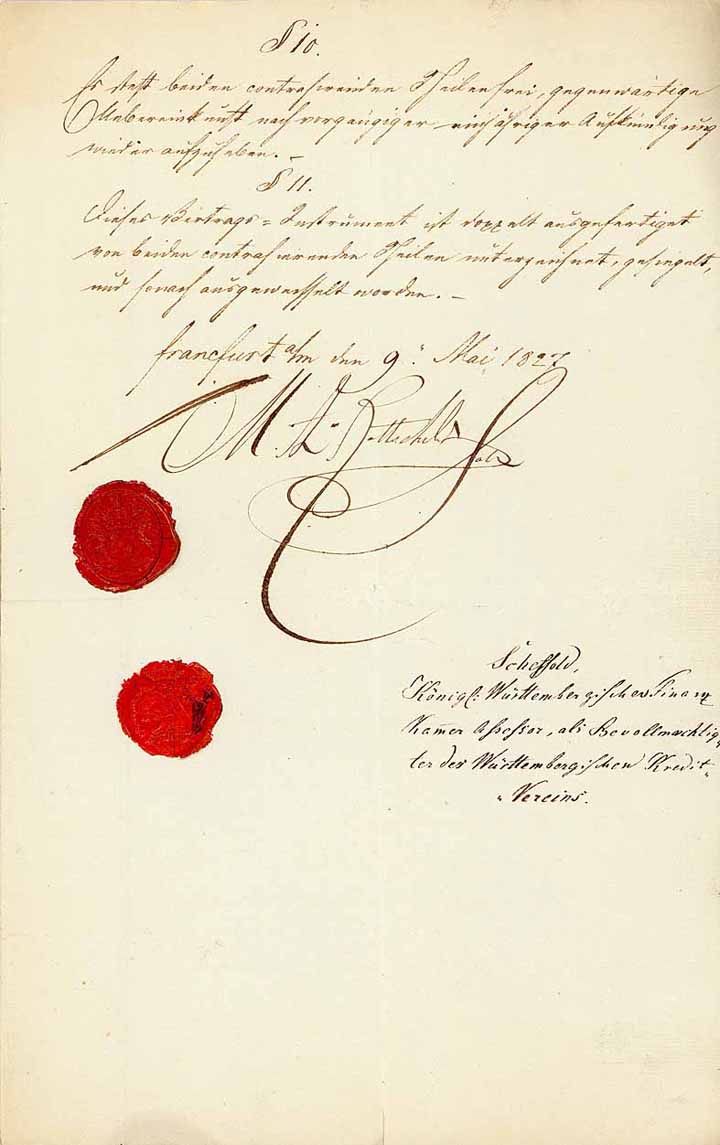 § 10.
Es steht beiden contrahirenden Theilen frei, gegenwärtige
Uebereinkunft nach vorgängiger einjähriger Aufkündigung
wieder aufzuheben. –
§ 11.
Dieses Vertrags=Instrument ist doppelt ausgefertiget
von beiden contrahirenden Theilen unterzeichnet, gesiegelt,
und sonach ausgewechselt worden. –
Francfurt a/m den 9: Mai 1827
M. A. Rothschild
Scheffold,
Königl: Württembergischer Finanz
Kam̅er Assessor, als Bevollmächtig„
ter des Württembergischen Kredit„
„Vereins.